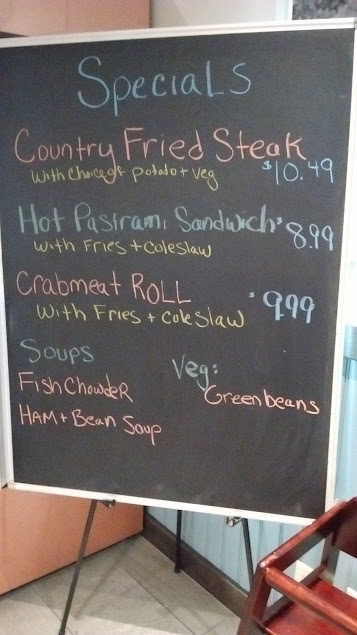 Specials
Country Fried Steak
With Choice of potato + Veg $10.49
Hot Pastrami Sandwich $8.99
With Fries + Coleslaw
Crabmeat ROLL $9.99
With Fries + Coleslaw
Soups
Veg:
Fish ChowdeR
Green beans
HAM + Bean Soup